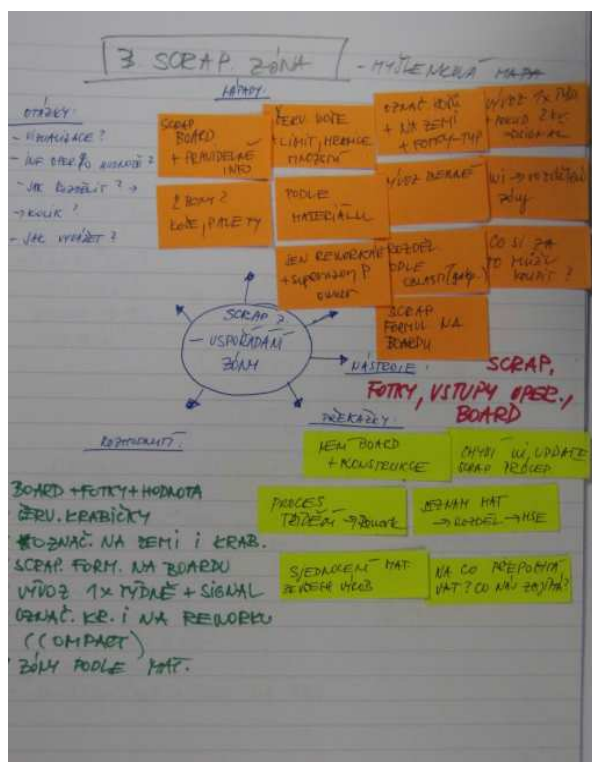 3 SCRAP ZÓNA - MYŠLENKOVÁ MAPA
NÁPADY:
OTÁZKY:
- VIZUALIZACE?
- JAK ROZDĚLIT? →
→ KOLIK?
- JAK VYVÁŽET?
SCRAP
BOARD
+ PRAVIDELNÉ
INFO
ČERV. KOŠE
+ LIMIT, HRANICE
MNOŽSTVÍ
OZNAČ. KOŠŮ
+ NA ZEMI
+ FOTKY-TYP
VÝVOZ 1x TÝDN
+ POKUD
SIGNAL
ZÓNY?
KOŠE, PALETY
PODLE
MATERIÁLU
VÝVOZ DENNĚ
WI → ROZDĚLENÍ
ZÓNY
JEN REWORKNÉ
ROZDĚL
PODLE
CO SI ZA
TO MŮŽU
KOUPIT?
SCRAP
FORMUL NA
BOARDU
SCRAP?
- USPOŘÁDÁNÍ
ZÓNY
NÁSTROJE:
SCRAP,
FOTKY, VSTUPY OPER.,
BOARD
PŘEKÁŽKY:
NENÍ BOARD
+ KONSTRUKCE
CHYBÍ WI, UPDATE
SCRAP PROCED
PROCES
TŘÍDĚNÍ → REWORK
SEZNAM MAT
→ ROZDĚL → HSE
SJEDNOCENÍ MAT.
ZE VŠECH VÝROB
NA CO PŘEPOČÍTÁ
VAT? CO NÁS ZAJÍMÁ?
ROZHODNUTÍ:
BOARD + FOTKY + HODNOTA
ČERV. KRABIČKY
OZNAČ. NA ZEMI I KRAB.
SCRAP. FORM. NA BOARDU
VÝVOZ 1x TÝDNĚ + SIGNAL
OZNAČ. KR. I NA REWORKU
(COMPACT)
ZÓNY PODLE MAT.